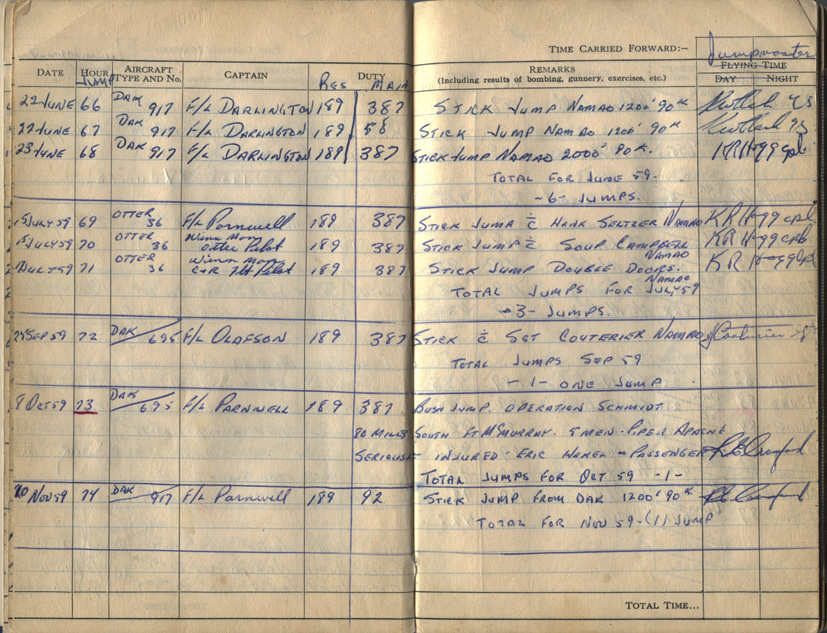 TIME CARRIED FORWARD:-
Jumpmaster
DATE HOUR JUMP AIRCRAFT TYPE AND No. CAPTAIN RES DUTY MAIN REMARKS (Including results of bombing, gunnery, exercises, etc.) FLYING TIME DAY NIGHT
22 JUNE 66 DAK 917 F/L DARLINGTON 189 387 STICK JUMP NAMAO 1200' 90K
22 JUNE 67 DAK 917 F/L DARLINGTON 189 56 STICK JUMP NAMAO 1200' 90K
23 JUNE 68 DAK 917 F/L DARLINGTON 189 387 STICK JUMP NAMAO 2000' 90K. KR Hogg cpl
TOTAL FOR JUNE 59.
-6- JUMPS.
JULY 59 69 OTTER 36 F/L Parnwell 189 387 STICK JUMP c̄ HANK SELTZER NAMAO KR Hogg cpl
JULY 59 70 OTTER 36 Otter Pilot 189 387 STICK JUMP c̄ SOUP CAMPBELL NAMAO KR Hogg cpl
JULY 59 71 OTTER 36 Pilot 189 387 STICK JUMP DOUBLE DOORS. NAMAO KR Hogg cpl
TOTAL JUMPS FOR JULY 59
-3- JUMPS.
SEP 59 72 DAK 695 F/L OLAFSON 189 387 STICK c̄ SGT COUTERIER NAMAO
TOTAL JUMPS SEP 59
-1- ONE JUMP
8 OCT 59 73 DAK 695 F/L PARNWELL 189 387 BUSH JUMP. OPERATION SCHMIDT.
80 MILES SOUTH FT McMURRAY. 5 MEN - PIPER APACHE
SERIOUSLY INJURED - ERIC - PASSENGER
TOTAL JUMPS FOR OCT 59 -1-
20 NOV 59 74 DAK 917 F/L Parnwell 189 92 STICK JUMP FROM DAK 1200' 90K
TOTAL FOR NOV 59 - (1) JUMP
TOTAL TIME...